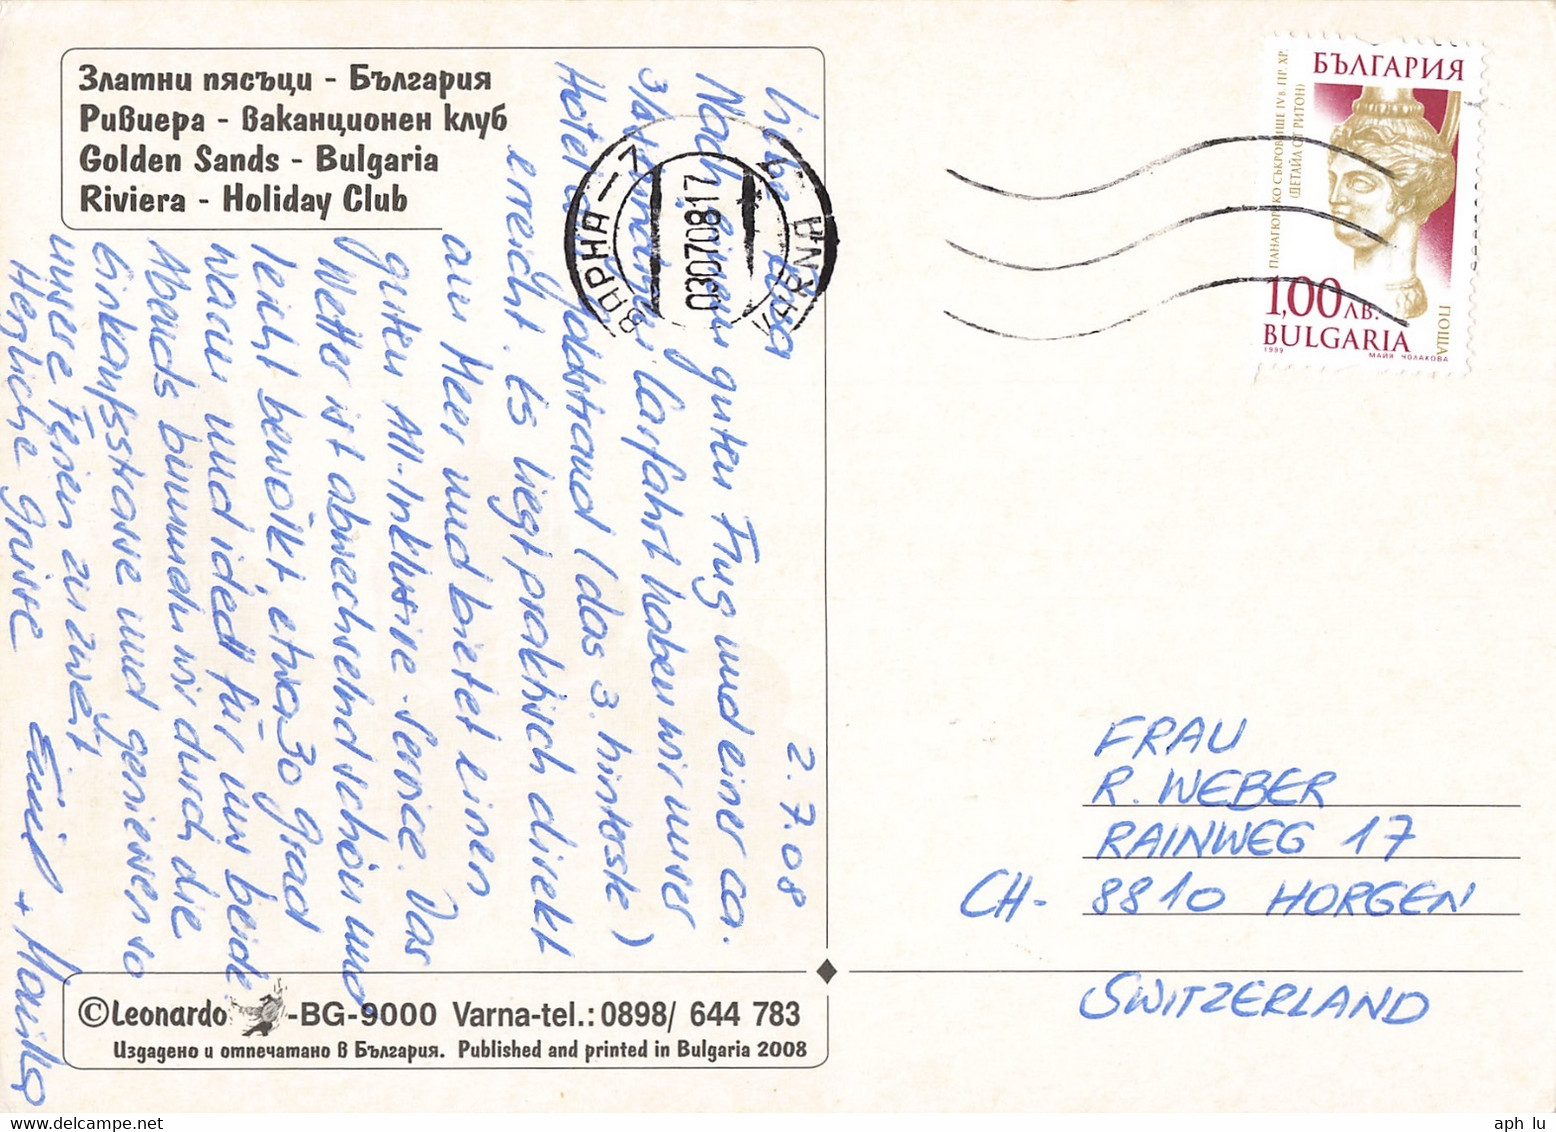 Златни пясъци - България
Ривиера - Ваканционен клуб
Golden Sands - Bulgaria
Riviera - Holiday Club
2.7.08
Liebe Rosa
Nach einem guten Flug und einer ca.
3/4 stündigen Carfahrt haben wir unser
Hotel Goldstrand (das 3. hinterste)
erreicht. Es liegt praktisch direkt
am Meer und bietet einen
guten All-Inklusive-Service. Das
Wetter ist abwechselnd schön und
leicht bewölkt, etwa 30 Grad
warm und ideal für uns beide
Abends bummeln wir durch die
Einkaufsstrasse und geniessen so
unsere Ferien zu zweit
Herzliche Grüsse
+ Mariko
ВАРНА-7
03070817
VARNA
БЪЛГАРИЯ
ПАНАГЮРСКО СЪКРОВИЩЕ IV в. ПР. ХР.
(ДЕТАЙЛ ОТ РИТОН)
1,00 ЛВ.
ПОЩА
BULGARIA
1999 МАЙЯ ЧОЛАКОВА
FRAU
R. WEBER
RAINWEG 17
CH- 8810 HORGEN
SWITZERLAND
©Leonardo -BG-9000 Varna-tel.:0898/ 644 783
Издадено и отпечатано в България. Published and printed in Bulgaria 2008
aph lu